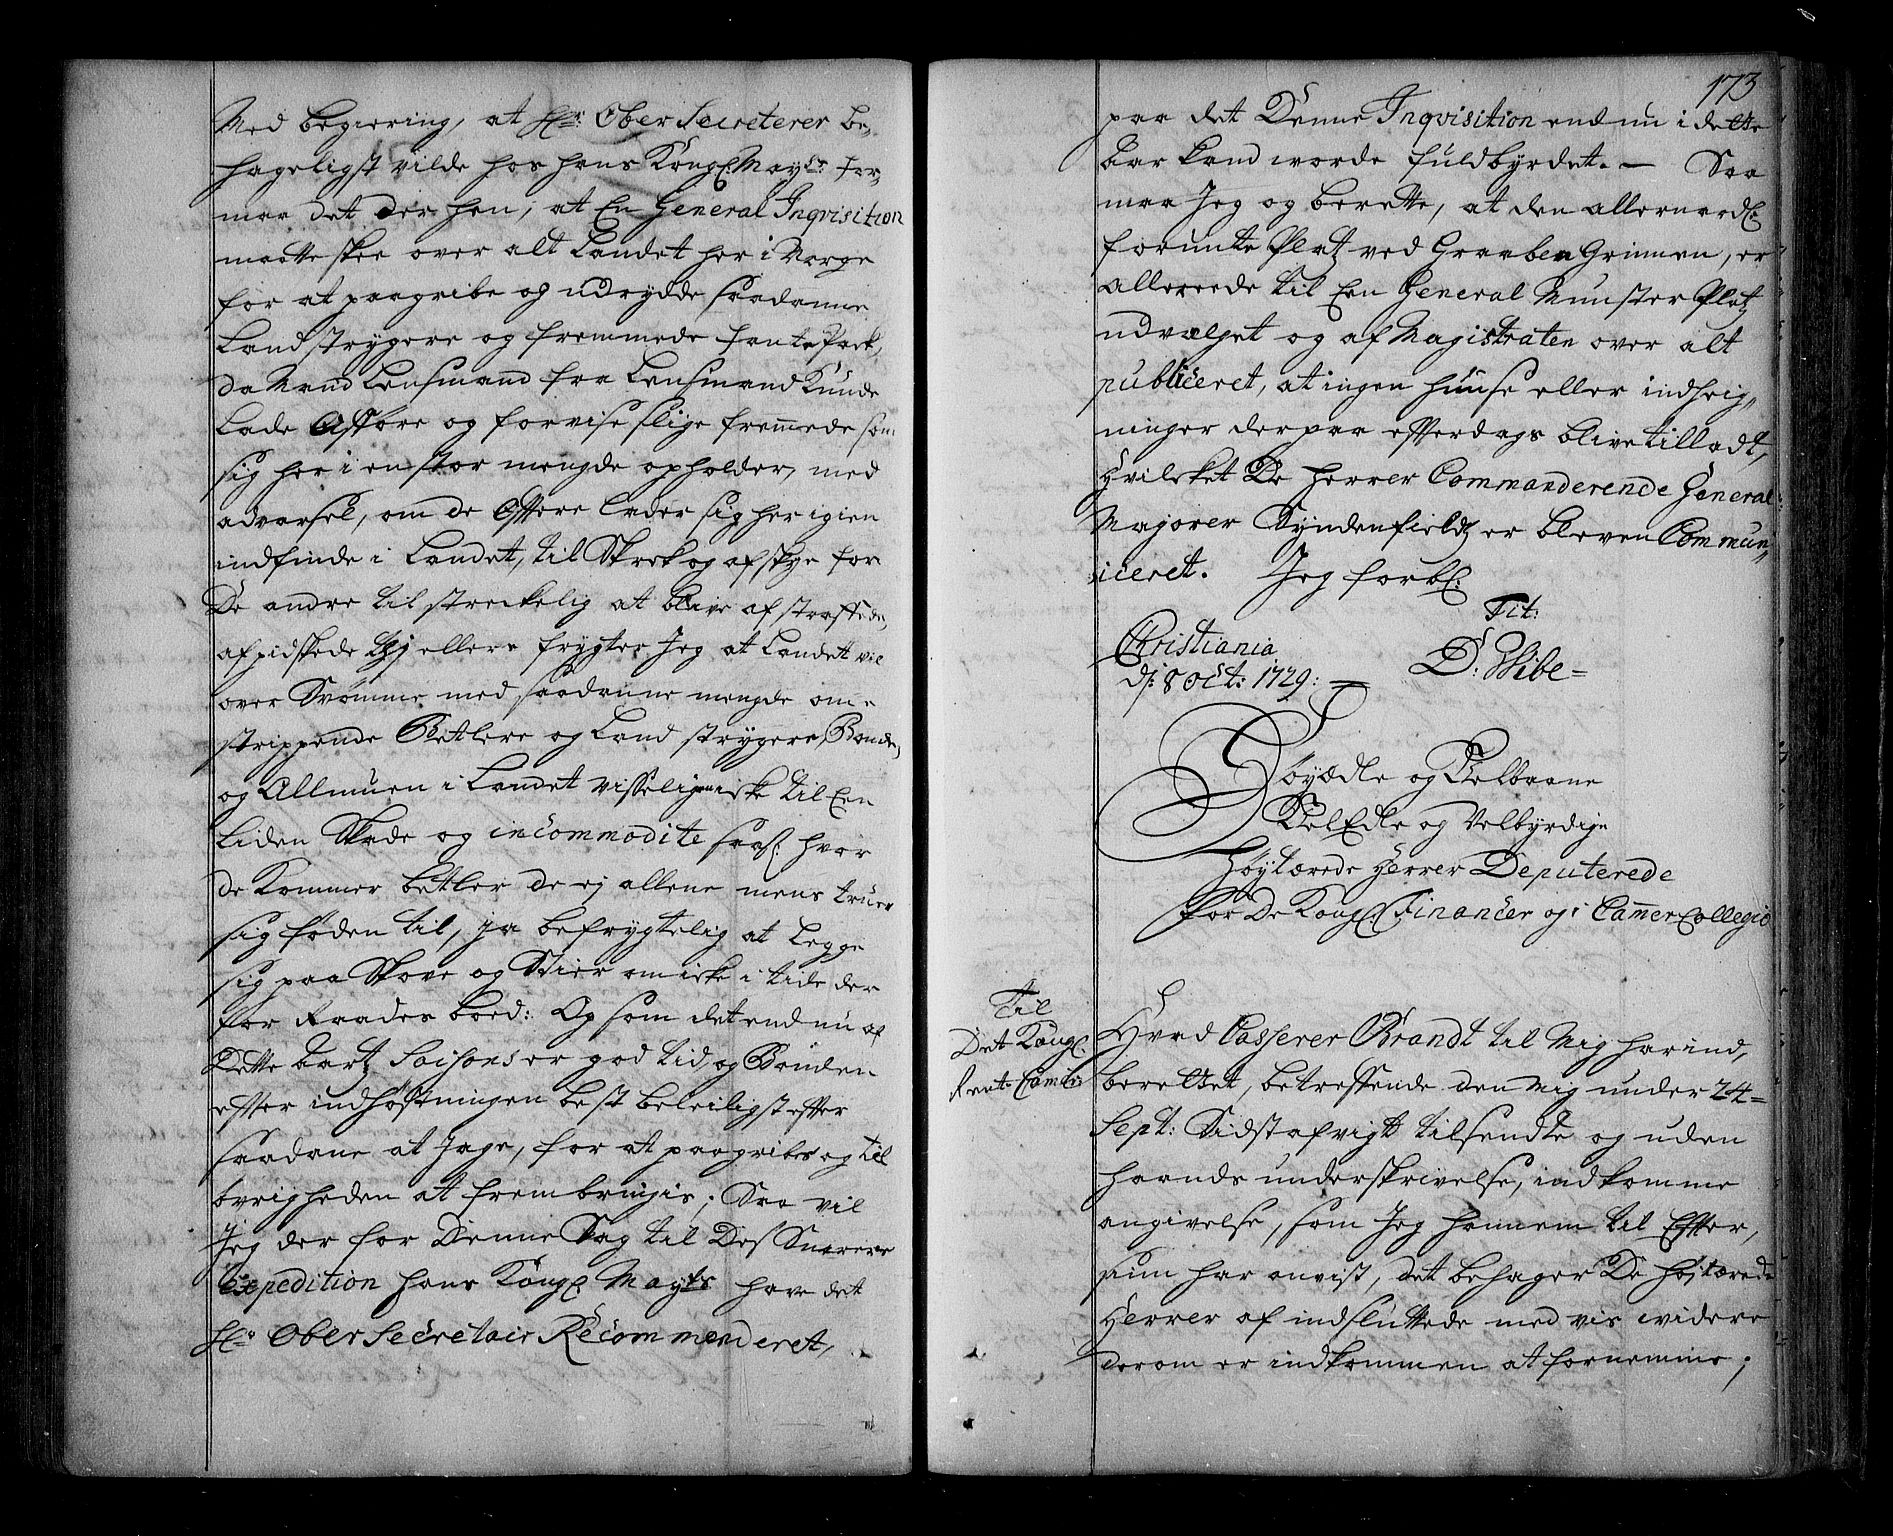 Med begiering, at Hr: Ober Secreterer be,
hageligst vilde hos hans Kongl: Mayst: for,
maa det der hen, at En General Inqvisition
maatte skee over alt Landet her i Norge
for at paagribe og udrydde saadanne
Landstrygere og fremmede fante Pack,
da Mand Lensmand fra Lensmand Kunde
Lade Affløre og forvise slige fremmede som
sig her i en stor mengde opholder, med
advarsel, om de oftere lader sig her igien
indfinde i Landet, til Skrek og afskye for
De andre til streckelig at blive af straffede,
afpidskede ellers frygter Jeg at Landett vil
over Svømme med saadanne mengde om-
strippende Betlere og Land strygere, Bonde,
og Allmuen i Landet visselig icke til Een
liden Skade og incommodite saasl: hvor
de Kommer betler de ej allene mens truer
sig føden til, ja befrygtelig at Legge
sig paa Skove og Stier om icke i tide der
for Raades boed: Og som det end nu af
Dette aartz Saisons er god tid, og Bonden
efter indhøstningen best beleiligst efter
saadane at Jage, for at paagribes og til
øvrigheden at frembringis; Saa vil
Jeg der for Denne Sag til Des Snarere
Expedition hans Kongl: Mayts have det
Hr: Ober Secretair Recommenderet,
173
paa det Denne Inqvisition end nu i dette
Aar kand worde fuldbyrdet. — Saa
maa Jeg og berette, at den allernaadl:
forunte Platz ved Graabein Grinnen, er
allereede til Een General Munster Platz
udvælget og af Magistraten over alt
publiceret, at ingen huuse eller indheig,,
ninger derpaa efterdags blive tilladt,
Hvilcket De herrer Commanderende General
Majorer Syndenfieldz er bleven Commun,,
iceret. Jeg forbl:
Tit:
Christiania
dj: 8 Oct: 1729: — D: Wibe=
Høyædle og Velbaarne
VelEdle og Velbyrdige
Høytærede Herrer Deputerede
for De Kongl: Financer og i Cammer Collegio
Til
Det Kongl:
Rent-Camer
Hvad Casserer Brandt til Mig har ind,
berettet, betreffende den Mig under 24=
Sept: Sidst afvigt tilsendte og uden
haands underskrivelse, indkomme
angivelse, som Jeg hannem til Efter,
siun har anvist, det behager De højtærede
Herrer af indsluttede med vis widere
derom er indkommen at fornemme;